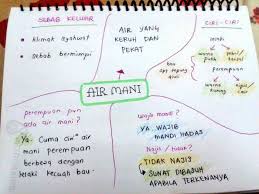 SEBAB KELUAR
• klimak syahwat
• sebab bermimpi
AIR YANG
KERUH DAN
PEKAT
CIRI-CIRI
warna
putih
perempuan
warna
kuning
AIR MANI
perempuan pun
ada air mani?
Ya. Cuma ciri² air
mani perempuan
berbeza dengan
lelaki kecuali bau.
wajib mandi?
YA. WAJIB
MANDI HADAS
Najis / tidak?
TIDAK NAJIS.
SUNAT DIBASUH
APABILA TERKENANYA